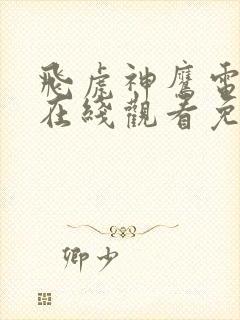 飛虎神鷹電
在綫觀看免
卿少